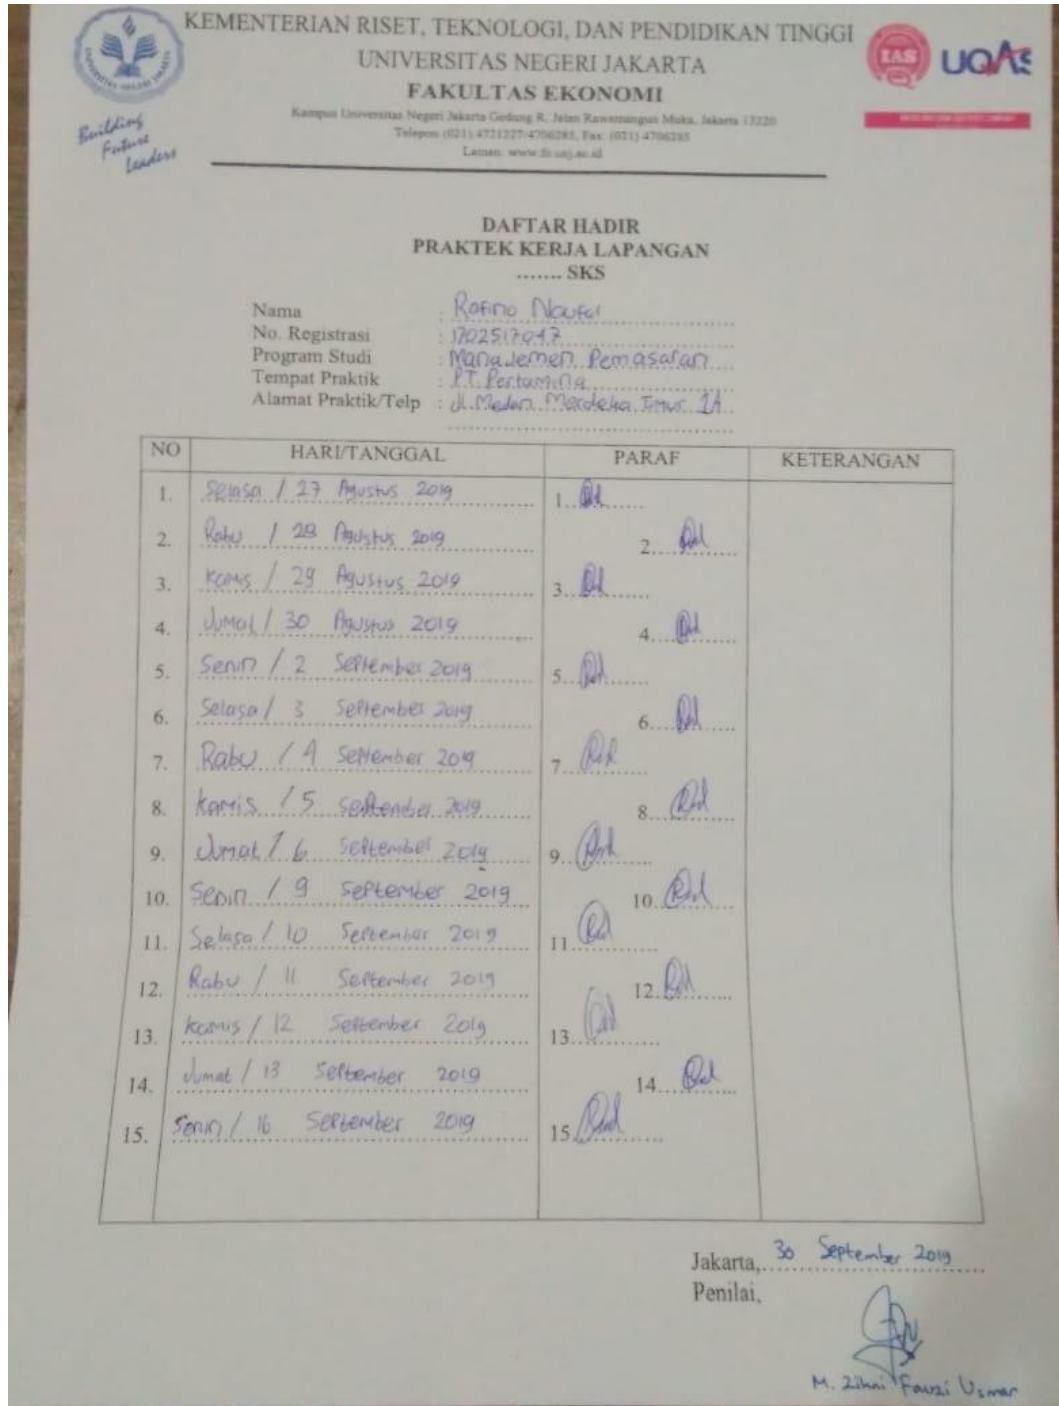 KEMENTERIAN RISET, TEKNOLOGI, DAN PENDIDIKAN TINGGI
UNIVERSITAS NEGERI JAKARTA
FAKULTAS EKONOMI
Kampus Universitas Negeri Jakarta Gedung R, Jalan Rawamangun Muka, Jakarta 13220
Telepon (021) 4721227/4706285, Fax: (021) 4706285
Laman: www.fe.unj.ac.id
Building
Future
Leaders
IAS
UQAS
DAFTAR HADIR
PRAKTEK KERJA LAPANGAN
....... SKS
Nama : Rofino Naufal
No. Registrasi : 1702517047
Program Studi : Manajemen Pemasaran
Tempat Praktik : PT. Pertamina
Alamat Praktik/Telp : Jl. Medan Merdeka Timur 1A
NO HARI/TANGGAL PARAF KETERANGAN
1. Selasa / 27 Agustus 2019 1.
2. Rabu / 28 Agustus 2019 2.
3. Kamis / 29 Agustus 2019 3.
4. Jumat / 30 Agustus 2019 4.
5. Senin / 2 September 2019 5.
6. Selasa / 3 September 2019 6.
7. Rabu / 4 September 2019 7.
8. Kamis / 5 September 2019 8.
9. Jumat / 6 September 2019 9.
10. Senin / 9 September 2019 10.
11. Selasa / 10 September 2019 11.
12. Rabu / 11 September 2019 12.
13. Kamis / 12 September 2019 13.
14. Jumat / 13 September 2019 14.
15. Senin / 16 September 2019 15.
Jakarta, 30 September 2019
Penilai,
M. Fauzi Usman